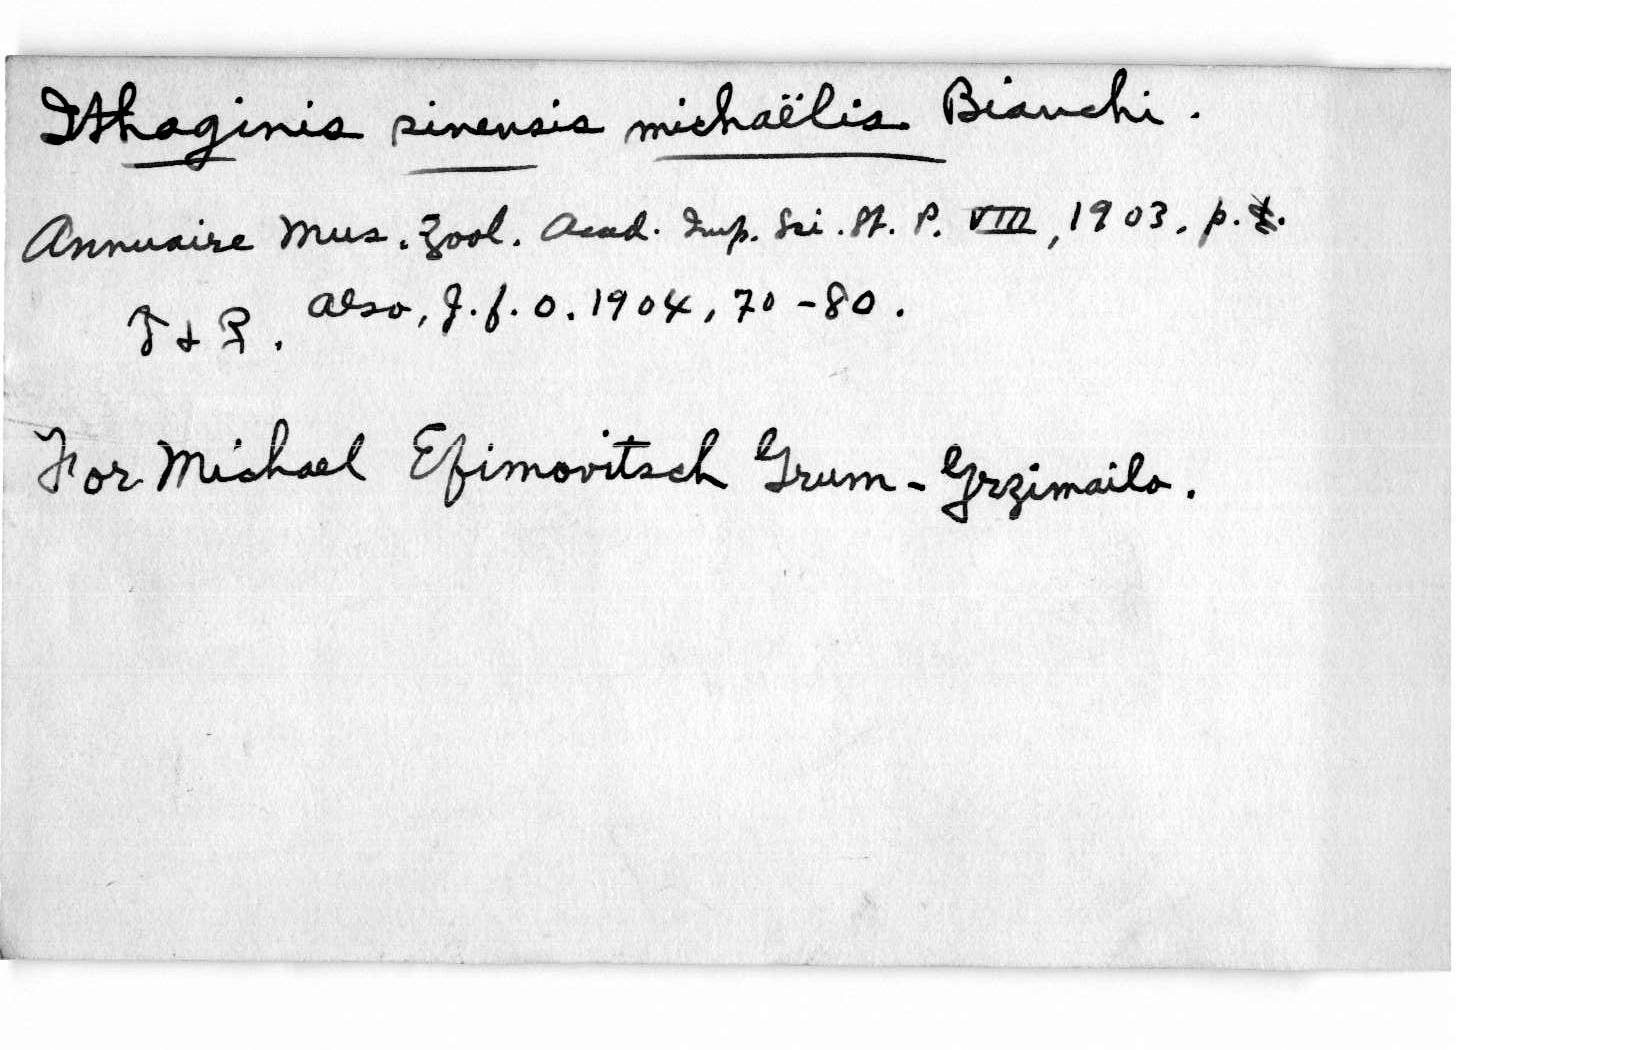 Ithaginis sinensis michaëlis Bianchi.
Annuaire Mus. Zool. Acad. Imp. Sci. St. P. VIII, 1903, p.
Also, J. f. O. 1904, 70-80.
♂ & ♀.
For Michael Efimovitsch Grum-Grzimailo.